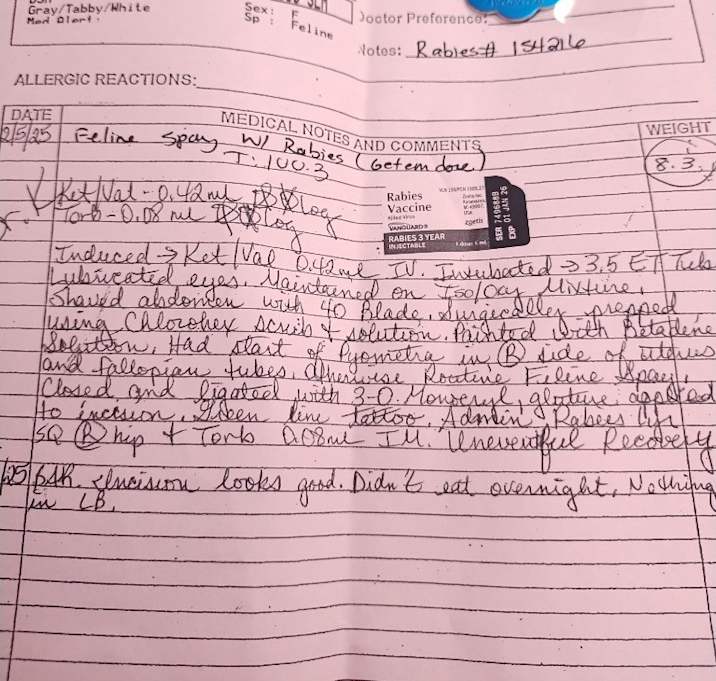 Gray/Tabby/White
Med Alert:
Sex: F
Sp : Feline
Doctor Preference:
Notes: Rabies# 154216
ALLERGIC REACTIONS:
DATE
MEDICAL NOTES AND COMMENTS
WEIGHT
2/5/25 Feline Spay w/ Rabies (Getem done)
T: 100.3
8.3
Ket/Val - 0.42 ml Log
Torb - 0.08 ml Log
Rabies
Vaccine
Killed Virus
VANGUARD®
zoetis
RABIES 3 YEAR
INJECTABLE
1 dose: 1 mL
SER 749688B
EXP 01 JAN 26
Induced → Ket/Val 0.42ml IV. Intubated → 3.5 ET Tube
Lubricated eyes. Maintained on Iso/Oxy Mixture.
Shaved abdomen with 40 Blade. Surgically prepped
using Chlorohex scrub + solution. Painted with Betadene
Solution. Had start of Pyometra in R side of uterus
and fallopian tubes. Otherwise Routine Feline Spay.
Closed and ligated with 3-0 Monocryl, gluture applied
to incision. Green line tattoo. Admin. Rabies
SQ R hip + Torb 0.08ml IM. Uneventful Recovery
25 BAR. Incision looks good. Didn't eat overnight. Nothing
in LB.